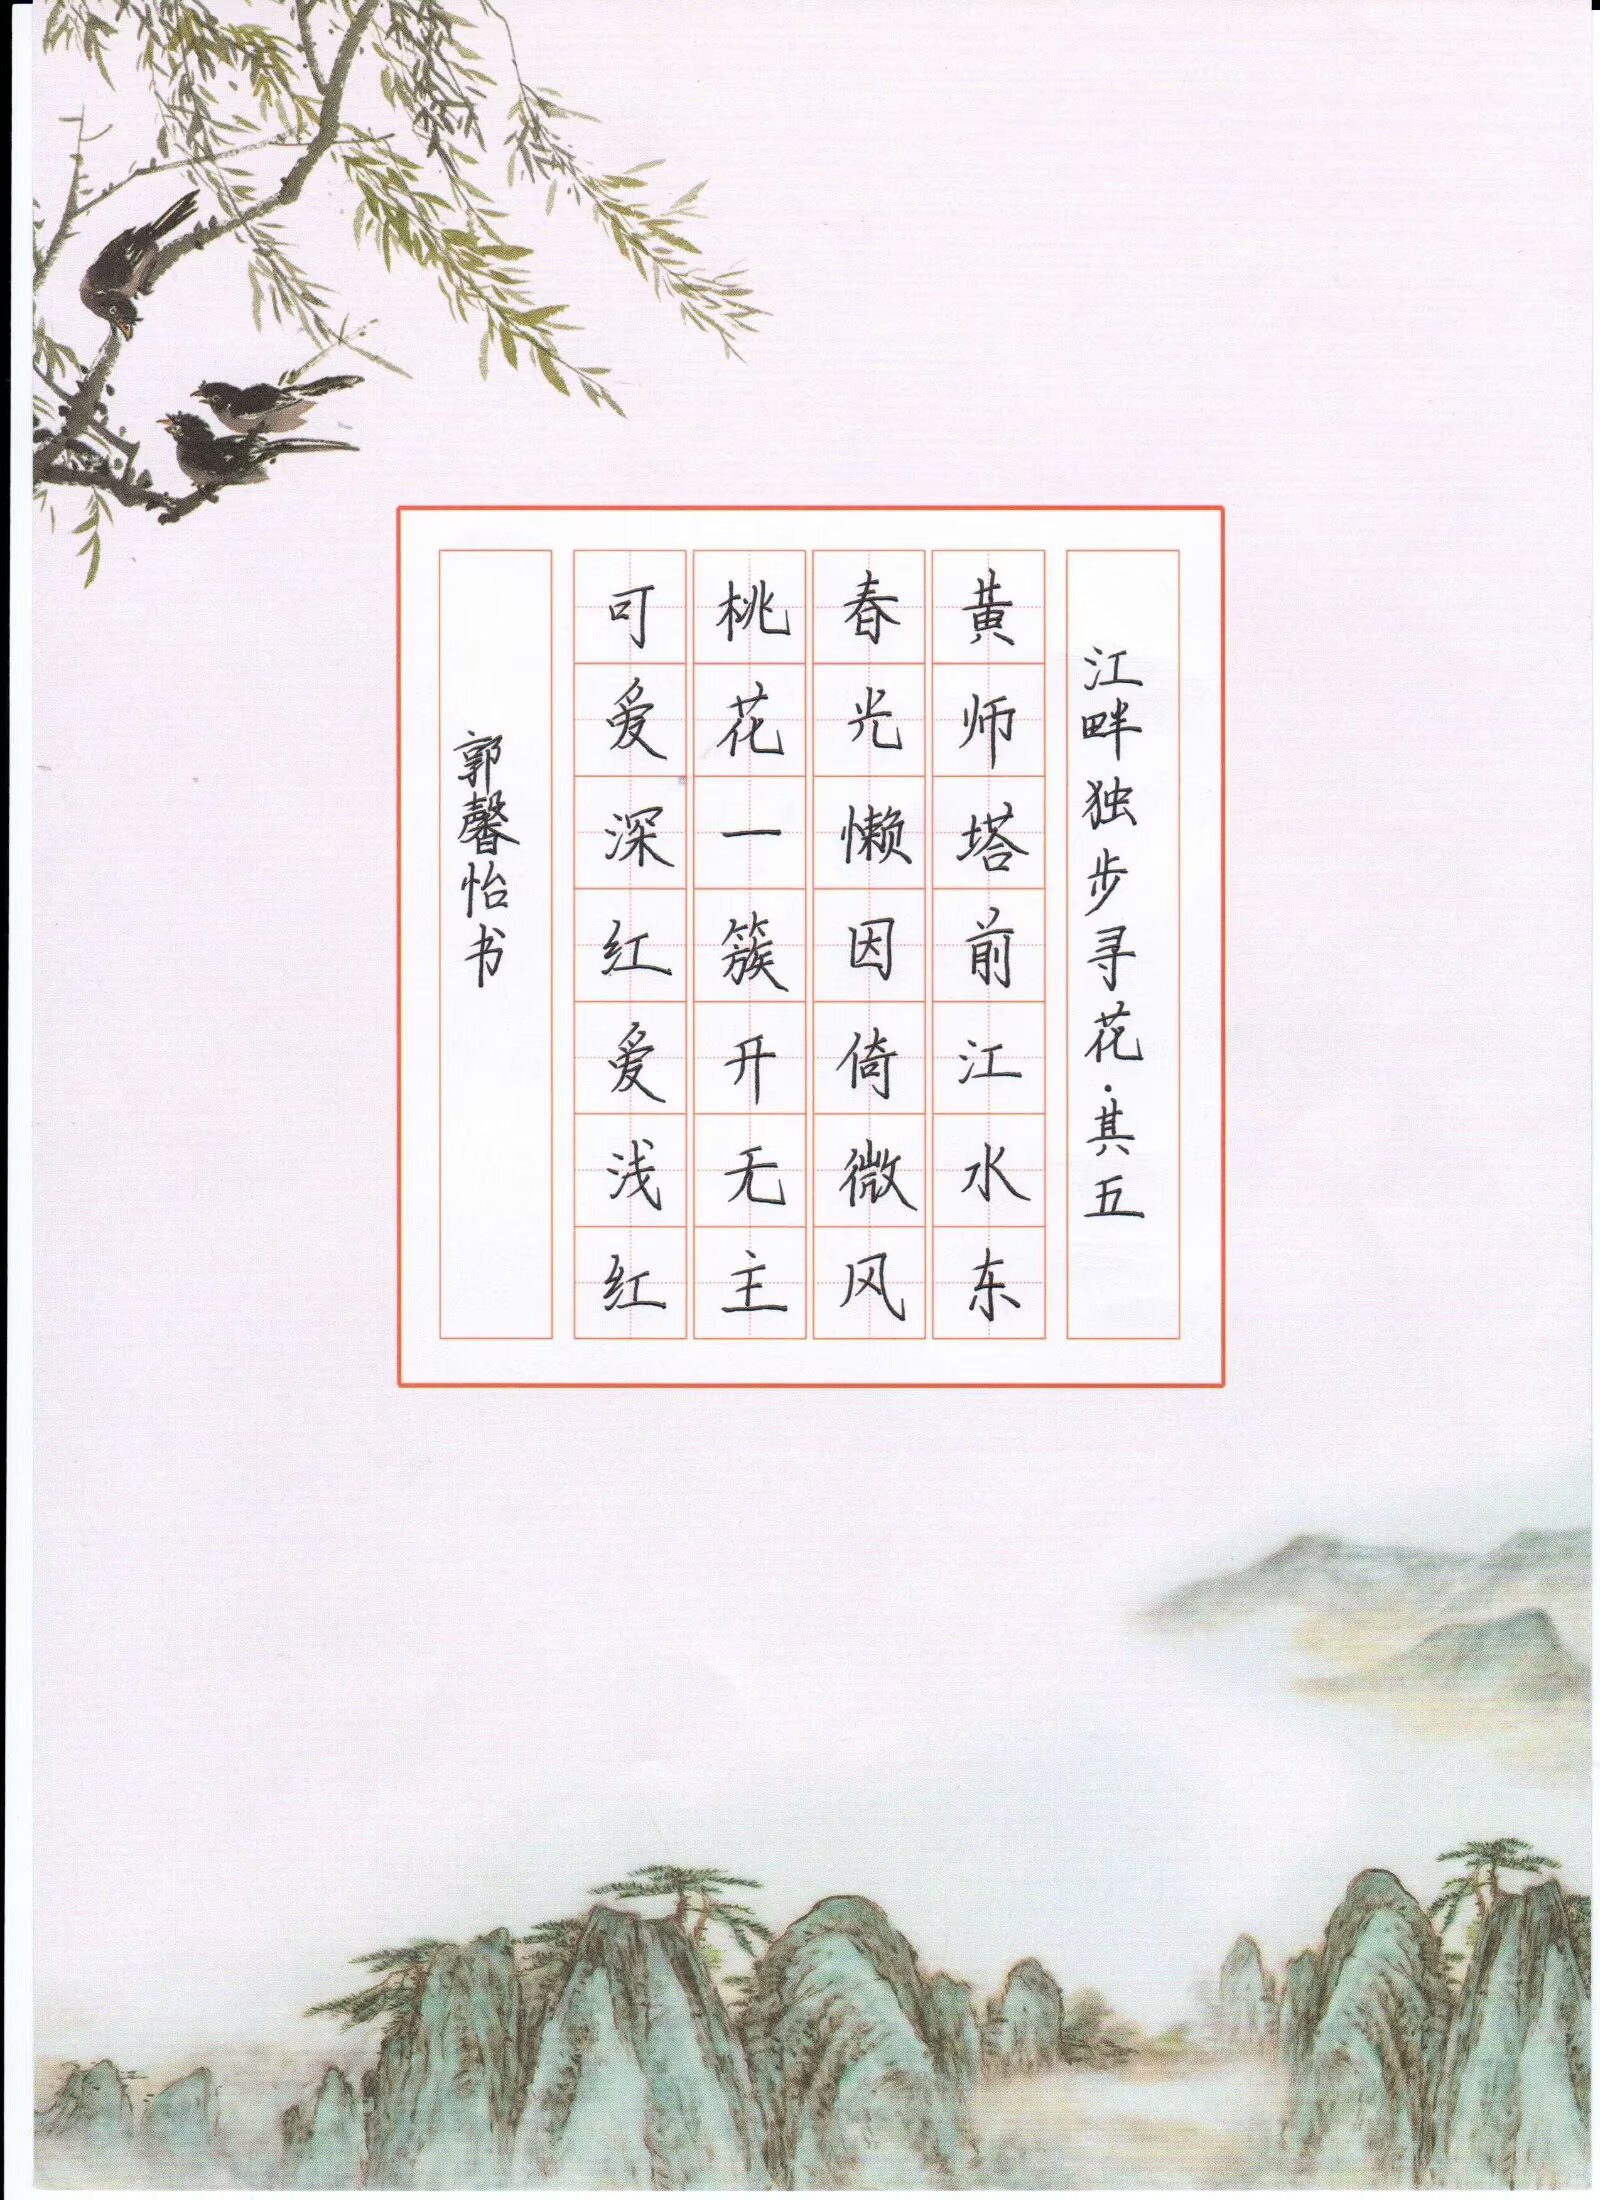 江畔独步寻花·其五
黄师塔前江水东
春光懒因倚微风
桃花一簇开无主
可爱深红爱浅红
郭馨怡书